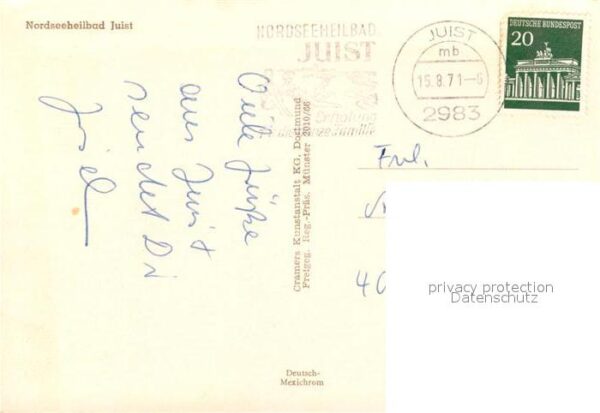 Nordseeheilbad Juist
NORDSEEHEILBAD
JUIST
Erholung
JUIST
mb
15.8.71-6
2983
DEUTSCHE BUNDESPOST
20
aus Juist
sendet Di
Cramers Kunstanstalt KG. Dortmund
Freigeg. Reg.-Präs. Münster 2010/66
Frl.
40
privacy protection
Datenschutz
Deutsch-
Mexichrom